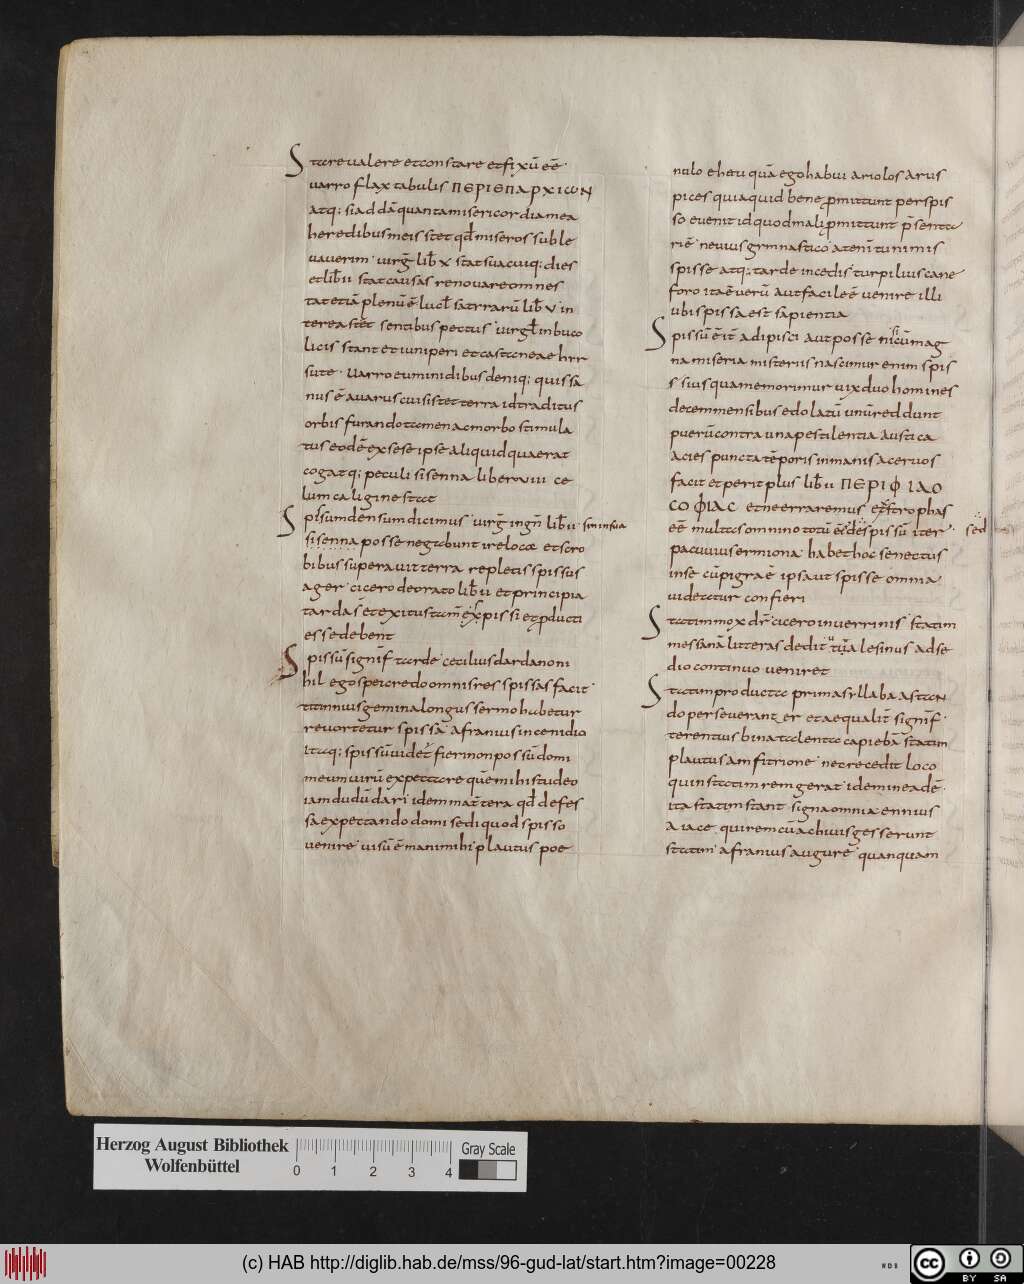 Stare valere et constare et fixū eē·
varro flax tabulis ΠΕΡΙ ΕΠΑΡΧΙωΝ
atq; si addā quanta misericordia mea
heredibus meis stet qđ miseros suble
vaverim· virg̅ lib̄ x stat sua cuiq; dies
et lib̄ ii stat causas renovare omnes
tat etiā plenū ē lucł satyrarū lib̄ v in
terea stēt sentibus pectus virgł in buco
licis stant et iuniperi et castaneae hyr
sute· varro euminidibus deniq; qui sa
nus ē avarus cui si stet terra id traditus
orbis furando tamen ac morbo stimula
tus eodē ex sese ipse aliquid quaerat
cogatq; peculi sisenna liber viii ce
lum caligine stat
Spissum densum dicimus virg̅ in gn̄ lib̄ ii semin sua
sisenna posse negabunt ire loca et scro
bibus superavit terra repletis spissus
ager cicero de orato lib̄ ii et principia
tarda s̄ et exitus tam̄ exspissi et ꝓducti
esse debent
Spissū signif̄ tarde cecilius dardano ni
hil ego spei credo omnis res spissas facit·
titinnius gemina longus sermo habetur
revortetur spissā afranius incenidio
itaq; spissū videt̄ fieri non possū domi
meum virū expectare quē mihi studeo
iam dudū dari idem materterа qđ defes
sa expectando domi sedi quod spisso
venire visū ē mani mihi plautus poe
nulo eheu quā ego habui ariolos arus
pices qui aquid bene promittunt perspis
so evenit id quod mali promittunt p̄senta
riē nevius gymnastico at enī tu nimis
spisse atq; tarde incedis turpilius cane
foro ita ē verū aut facile ē venire illi
ubi spissa est sapientia
Spissū ē it̄ adipisci aut posse n̄ cū mag
na miseria misteriis nascimur enim spis
sius quam emorimur vix duo homines
decem mensibus edolatū unū reddunt
puerū contra una pestilentia austi ca
acies puncta tēporis inmanis acervos
facit et perit plus lib̄ ii ΠΕΡΙ ΦΙΛΟ
СОΦΙΑС et ne erraremus ectrophas
eē multas omnino totū eē de spissū iter· sed
pacuvius ermiona habet hoc senectus
in se cū pigra ē ipsa ut spisse omnia
videatur confieri
Statim mox dr̄ cicero in verrinis statim
messanā litteras dedit tua lesinus ad se
dio continuo veniret
Statim producta prima syllaba astan
do perseverant er et aequalit̄ signif̄·
terentius bina talenta capiebā statim
plautus amfitrione nec recedit loco
quin statim rem gerat idem in eadē·
ita statim stant signa omnia ennius
aiace qui rem cū achivis gesserunt
statim afranius augure quanquam
Herzog August Bibliothek
Wolfenbüttel
0 1 2 3 4
Gray Scale
(c) HAB http://diglib.hab.de/mss/96-gud-lat/start.htm?image=00228
WDB
cc BY SA